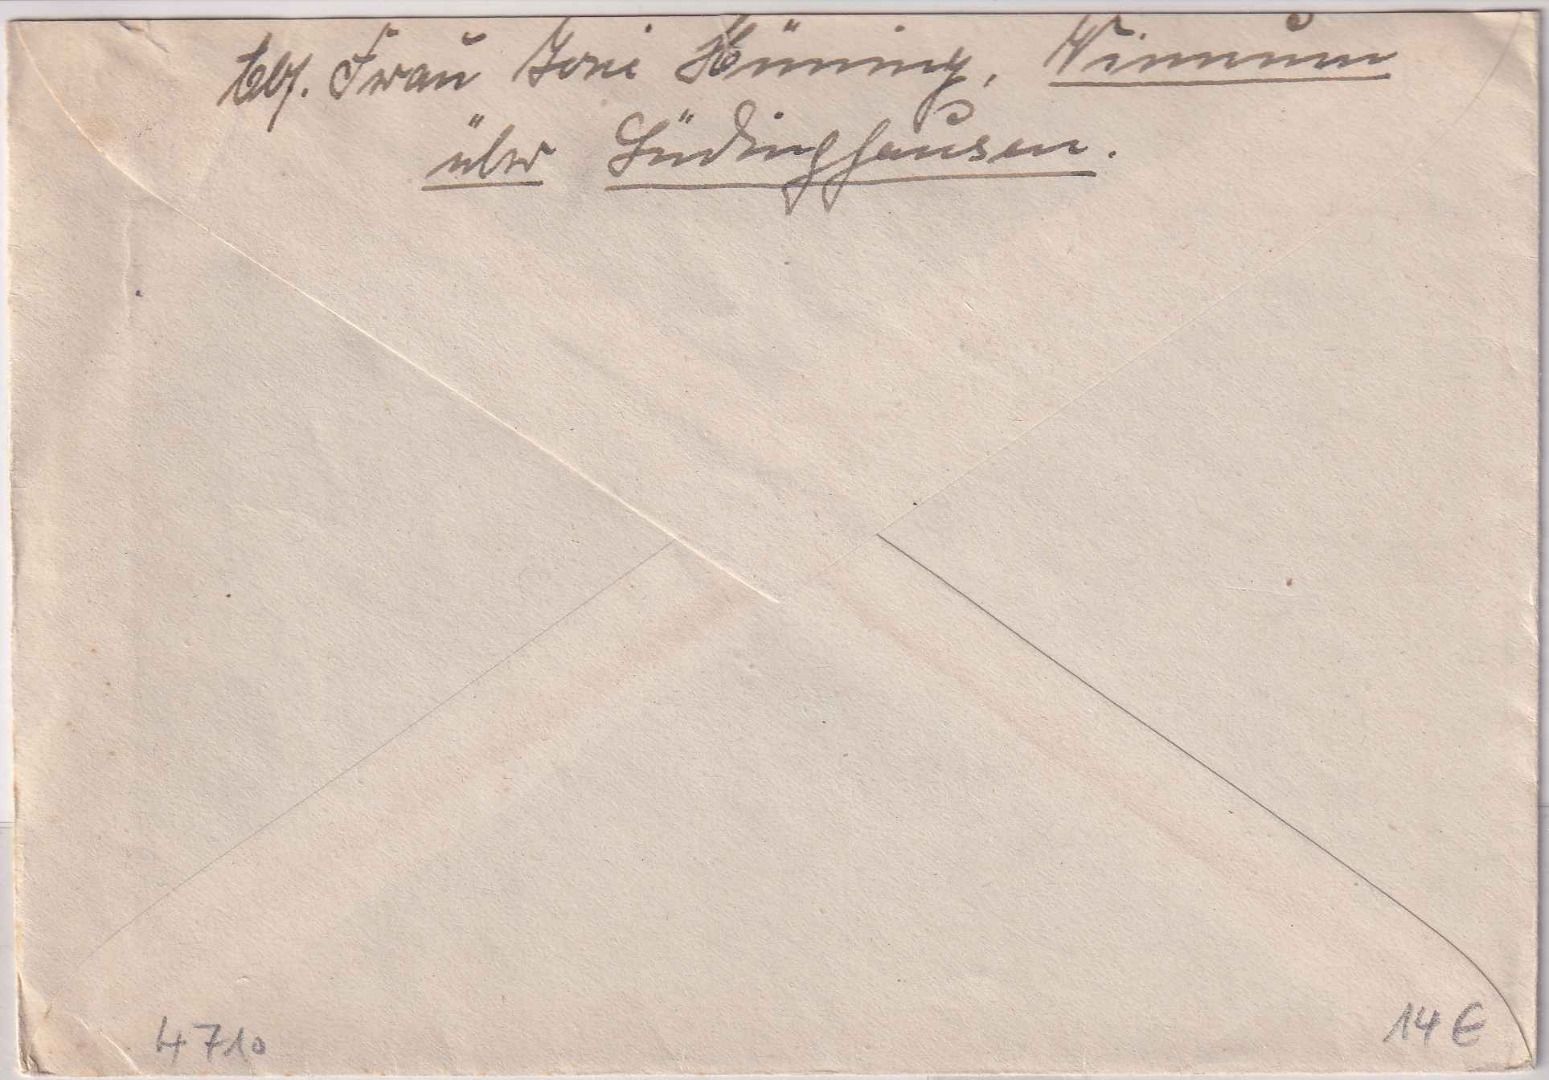 Abs. Frau Toni Hüning, Winnum
über Lüdinghausen.
4710
14 €